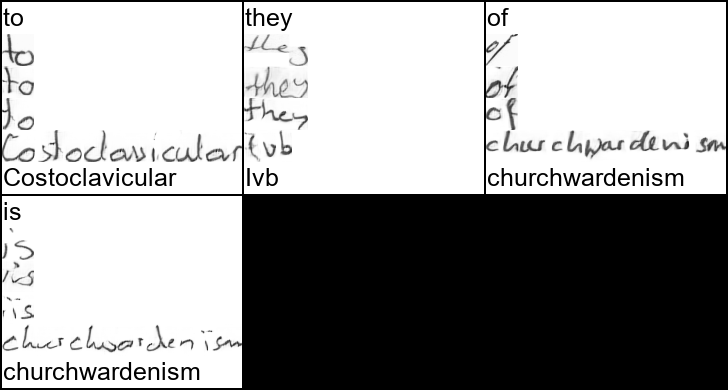 to
to
to
to
Costoclavicular
Costoclavicular
they
they
they
they
lvb
lvb
of
of
of
of
churchwardenism
churchwardenism
is
is
is
is
churchwardenism
churchwardenism